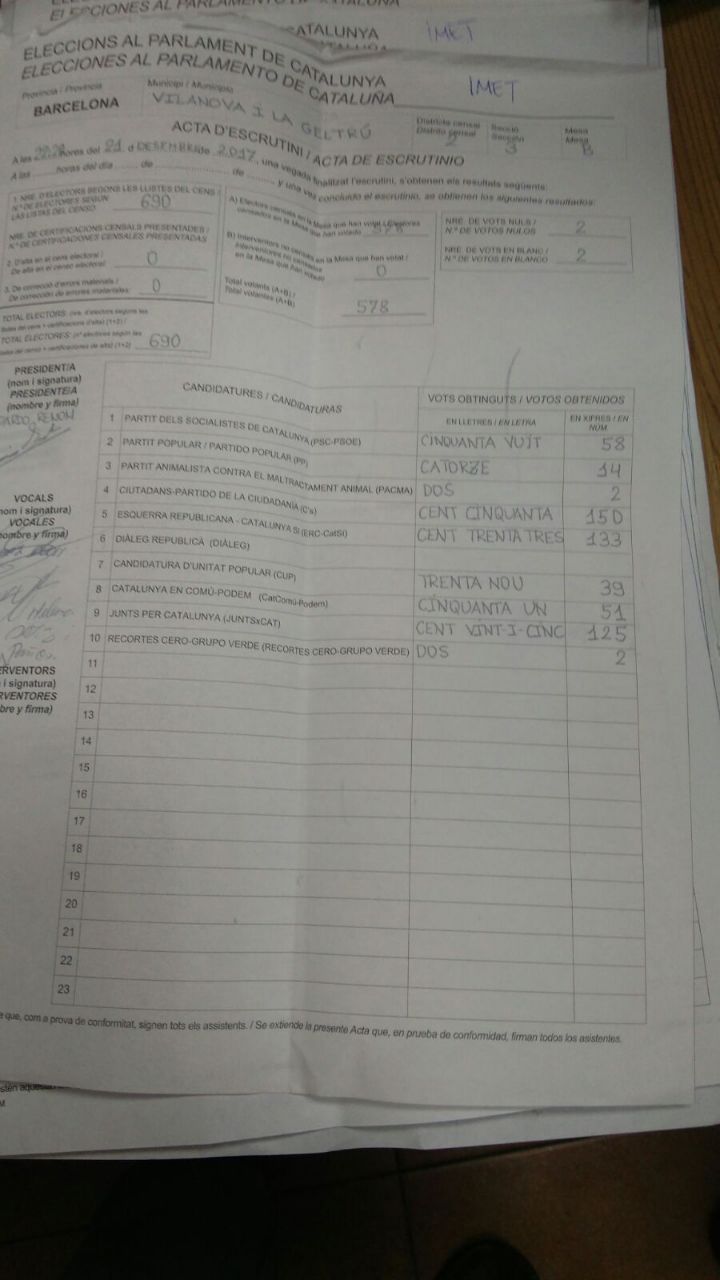 CATALUNYA
IMET
ELECCIONS AL PARLAMENT DE CATALUNYA
ELECCIONES AL PARLAMENTO DE CATALUÑA
IMET
Província / Provincia
BARCELONA
Municipi / Municipio
VILANOVA I LA GELTRÚ
Districte censal
Distrito censal
2
Secció
Sección
3
Mesa
Mesa
B
ACTA D'ESCRUTINI / ACTA DE ESCRUTINIO
A les hores del 21 d DESEMBRE de 2017, una vegada finalitzat l'escrutini, s'obtenen els resultats següents:
A las ........ horas del día ........ de ........ de ........ y una vez concluido el escrutinio, se obtienen los siguientes resultados:
1. NRE. D'ELECTORS SEGONS LES LLISTES DEL CENS /
N.º DE ELECTORES SEGÚN
LAS LISTAS DEL CENSO
690
NRE. DE CERTIFICACIONS CENSALS PRESENTADES /
N.º DE CERTIFICACIONES CENSALES PRESENTADAS
2. D'alta en el cens electoral /
De alta en el censo electoral
0
3. De correcció d'errors materials /
De corrección de errores materiales
0
TOTAL ELECTORS: (nre. d'electors segons les
llistes del cens + certificacions d'alta) (1+2) /
TOTAL ELECTORES: (nº electores según las
listas del censo + certificaciones de alta) (1+2)
690
A) Electors censats en la Mesa que han votat / Electores
censados en la Mesa que han votado 578
B) Interventors no censats en la Mesa que han votat /
Interventores no censados
en la Mesa que han votado
0
Total votants (A+B) /
Total votantes (A+B)
578
NRE. DE VOTS NULS /
N.º DE VOTOS NULOS
2
NRE. DE VOTS EN BLANC /
N.º DE VOTOS EN BLANCO
2
PRESIDENT/A
(nom i signatura)
PRESIDENTE/A
(nombre y firma)
VOCALS
nom i signatura)
VOCALES
ombre y firma)
ERVENTORS
i signatura)
RVENTORES
bre y firma)
CANDIDATURES / CANDIDATURAS
VOTS OBTINGUTS / VOTOS OBTENIDOS
EN LLETRES / EN LETRA
EN XIFRES / EN NÚM
1 PARTIT DELS SOCIALISTES DE CATALUNYA (PSC-PSOE) CINQUANTA VUIT 58
2 PARTIT POPULAR / PARTIDO POPULAR (PP) CATORZE 14
3 PARTIT ANIMALISTA CONTRA EL MALTRACTAMENT ANIMAL (PACMA) DOS 2
4 CIUTADANS-PARTIDO DE LA CIUDADANÍA (C's) CENT CINQUANTA 150
5 ESQUERRA REPUBLICANA - CATALUNYA SÍ (ERC-CatSí) CENT TRENTA TRES 133
6 DIÀLEG REPUBLICÀ (DIÀLEG)
7 CANDIDATURA D'UNITAT POPULAR (CUP) TRENTA NOU 39
8 CATALUNYA EN COMÚ-PODEM (CatComú-Podem) CINQUANTA UN 51
9 JUNTS PER CATALUNYA (JUNTSxCAT) CENT VINT-I-CINC 125
10 RECORTES CERO-GRUPO VERDE (RECORTES CERO-GRUPO VERDE) DOS 2
11
12
13
14
15
16
17
18
19
20
21
22
23
que, com a prova de conformitat, signen tots els assistents. / Se extiende la presente Acta que, en prueba de conformidad, firman todos los asistentes.